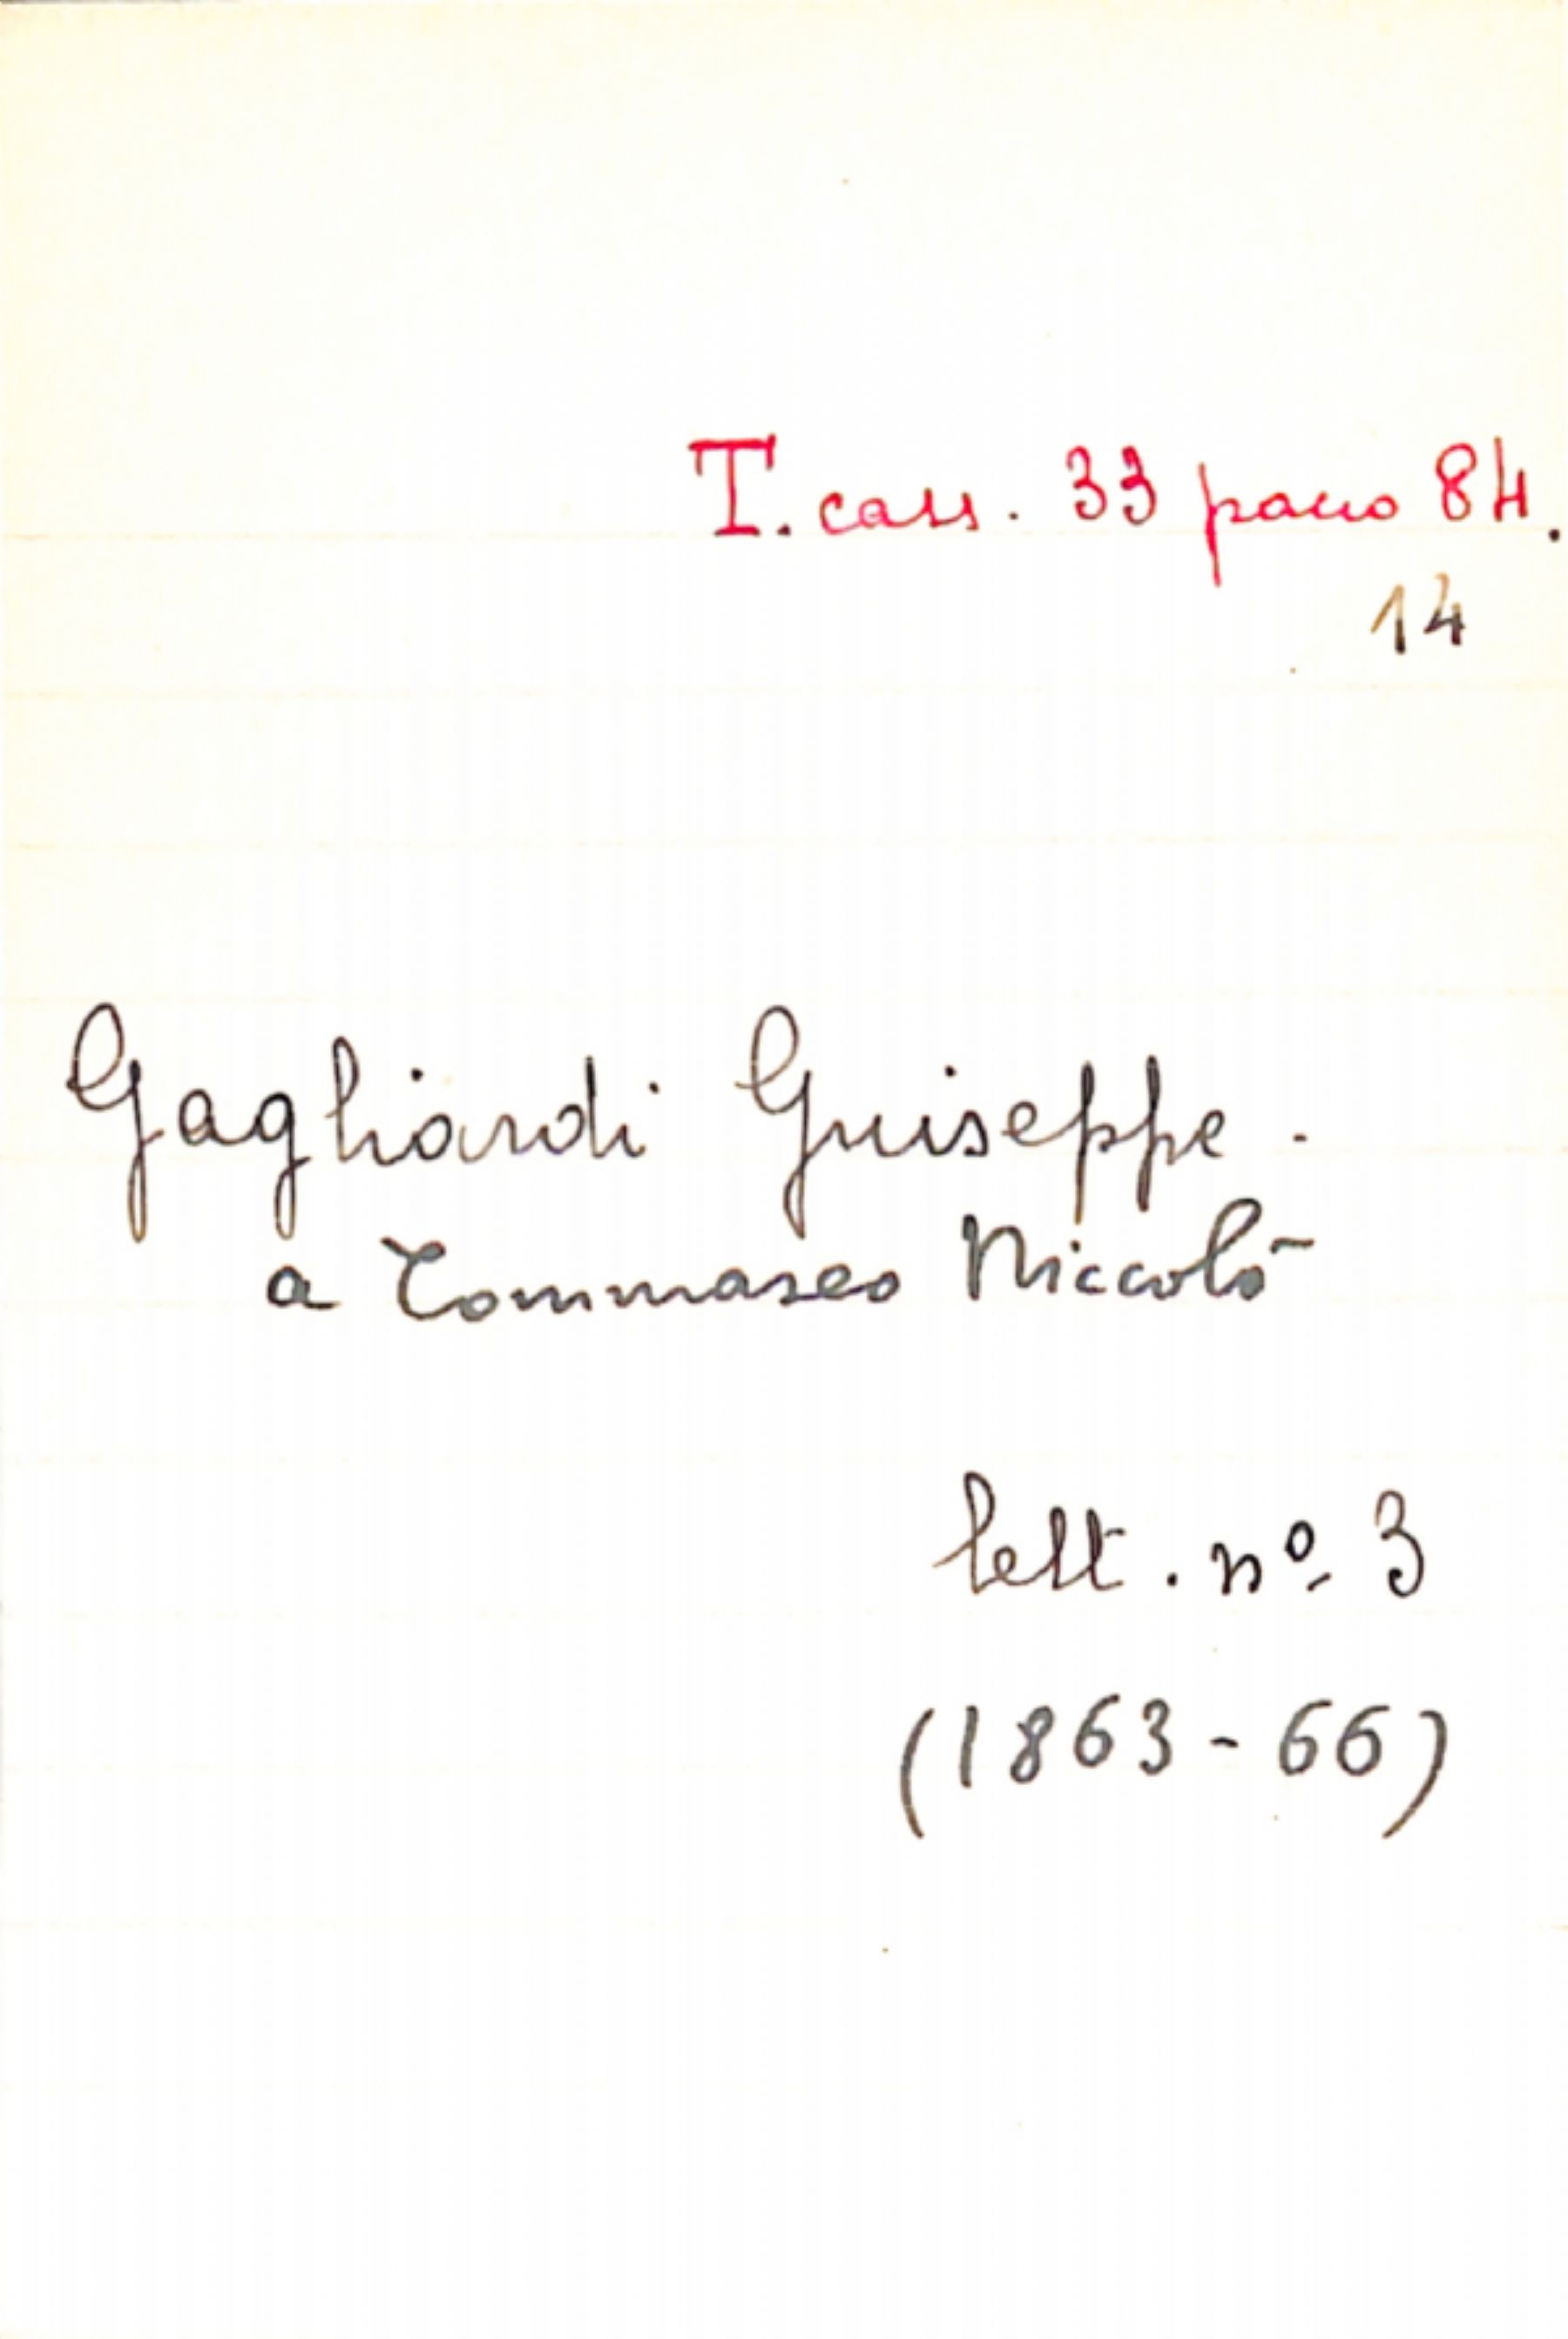 T. cass. 33 pacco 84.
14
Gagliardi Giuseppe.
a Tommaseo Niccolò
lett. nº 3
(1863-66)